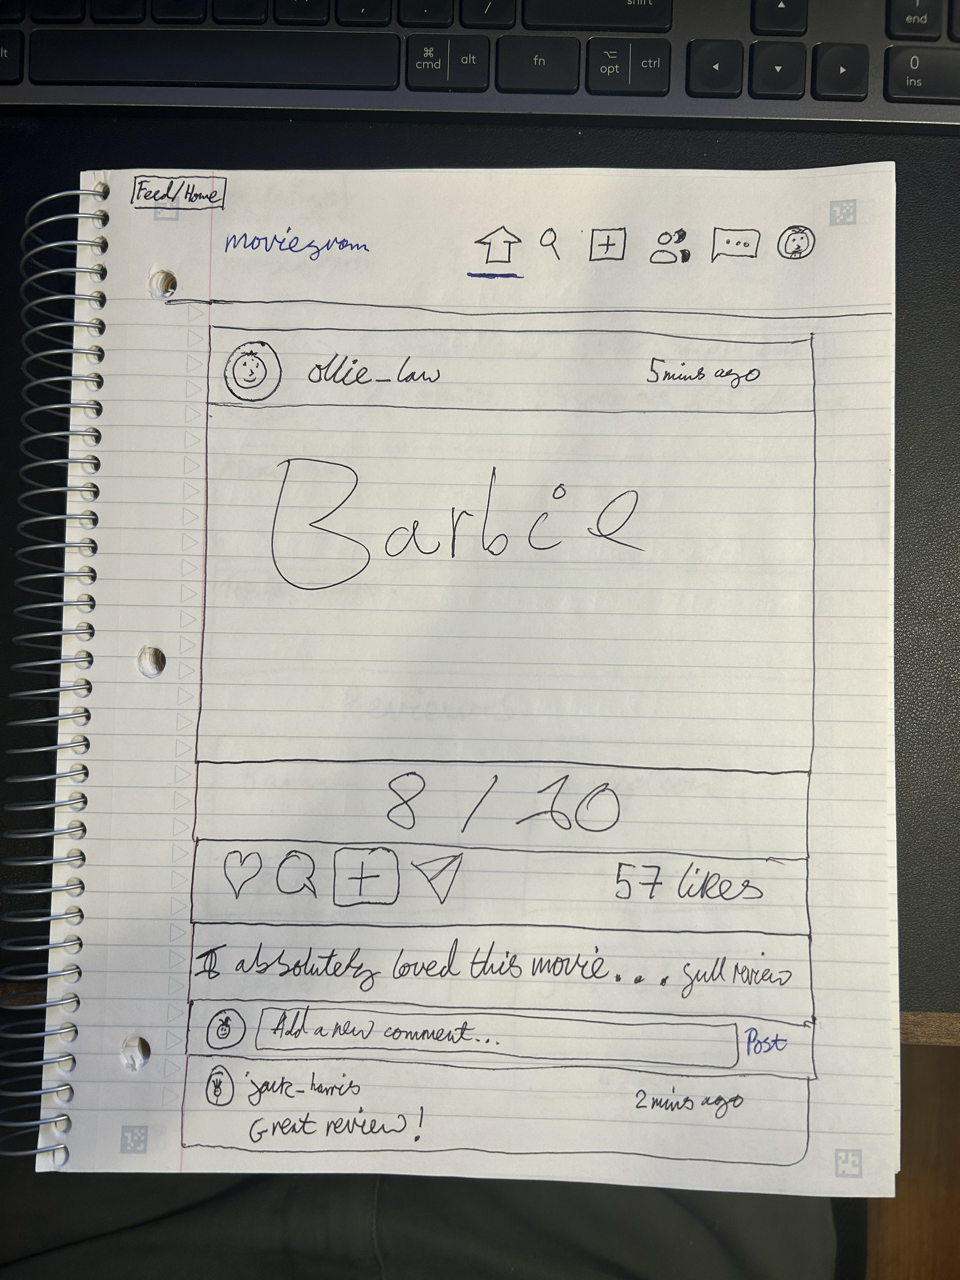 shift
end
lt
⌘
cmd
alt
fn
⌥
opt
ctrl
0
ins
Feed/Home
moviegram
ollie_law
5mins ago
Barbie
8 / 10
57 likes
I absolutely loved this movie... full review
Add a new comment...
Post
jack_harris
2 mins ago
Great review!